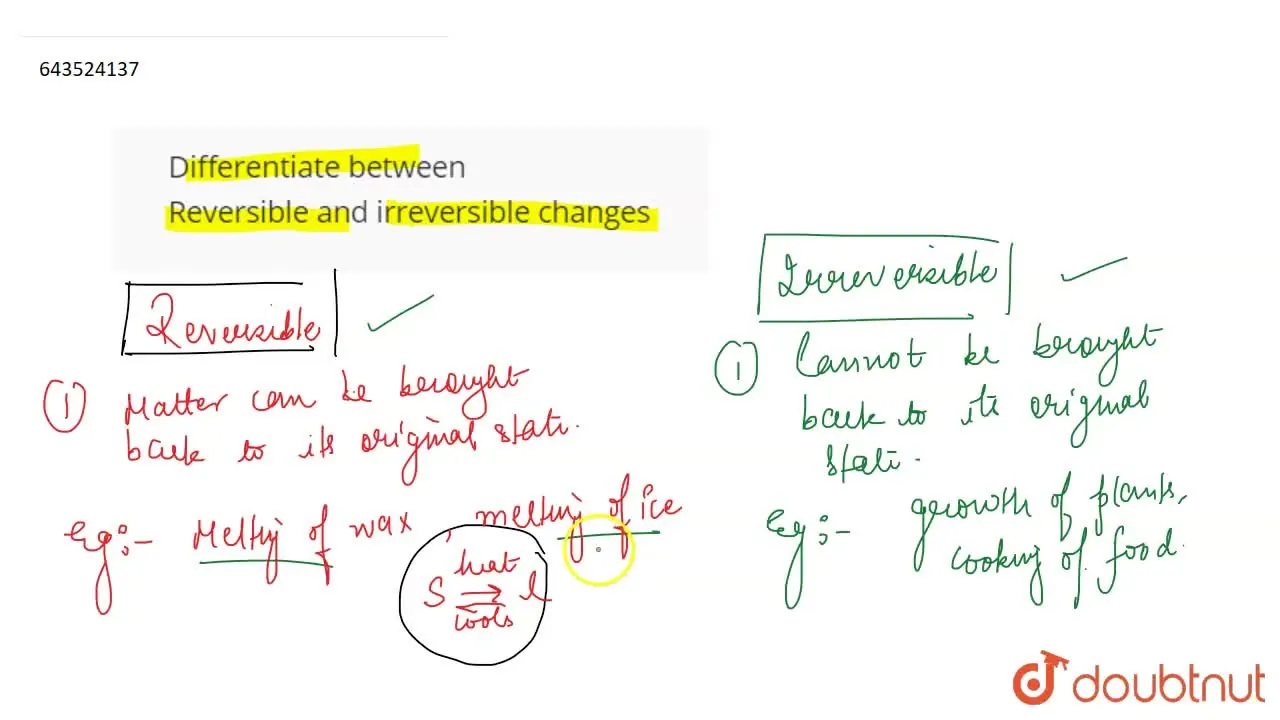 643524137
Differentiate between
Reversible and irreversible changes
Reversible
① Matter can be brought
back to its original state.
Eg:- Melting of wax, melting of ice
heat
S ⇌ l
cools
Irreversible
① Cannot be brought
back to its original
state.
Eg:- growth of plants,
cooking of food.
doubtnut